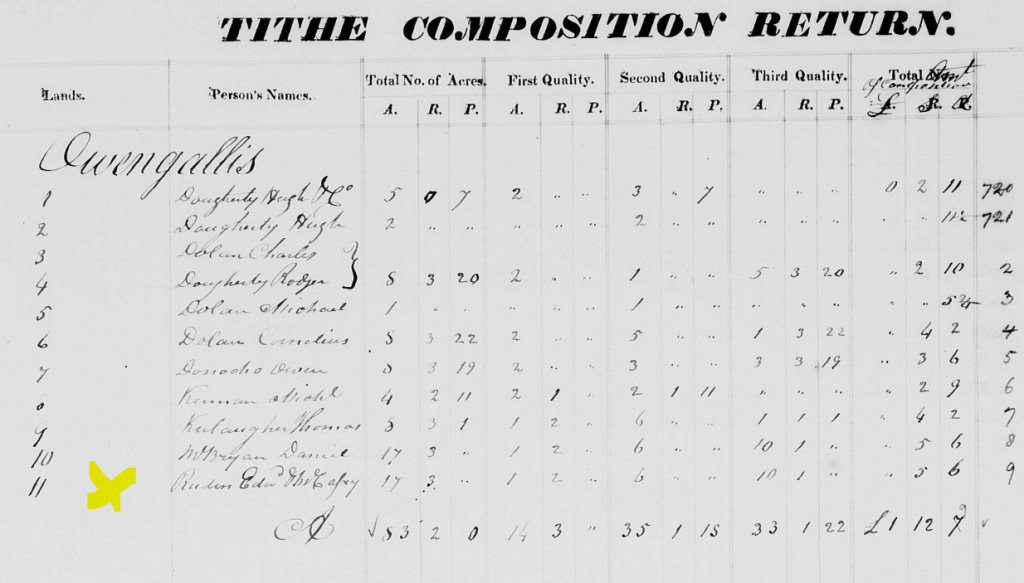 TITHE COMPOSITION RETURN.
Lands. Person's Names. Total No. of Acres. First Quality. Second Quality. Third Quality. Total Amt of Composition
A. R. P. A. R. P. A. R. P. A. R. P. £ S.
Owengallis
1 Dougherty Hugh & Co 5 0 7 2 " " 3 " 7 " " " 0 2 11 720
2 Dougherty Hugh 2 " " " " " 2 " " " " " " " 11½ 721
3 Dolan Charles
4 Dougherty Rodger } 8 3 20 2 " " 1 " " 5 3 20 " 2 10 2
5 Dolan Michael 1 " " " " " 1 " " " " " " " 3
6 Dolan Cornelius 8 3 22 2 " " 5 " " 1 3 22 " 4 2 4
7 Owen 8 3 19 2 " " 3 " " 3 3 19 " 3 6 5
8 Michl 4 2 11 2 1 " 2 1 11 " " " " 2 9 6
9 Thomas 8 3 1 1 2 " 6 " " 1 1 1 " 4 2 7
10 McBryan Daniel 17 3 " 1 2 " 6 " " 10 1 " " 5 6 8
11 Edwd & 17 3 " 1 2 " 6 " " 10 1 " " 5 6 9
A 83 2 0 14 3 " 35 1 18 33 1 22 £1 12 7